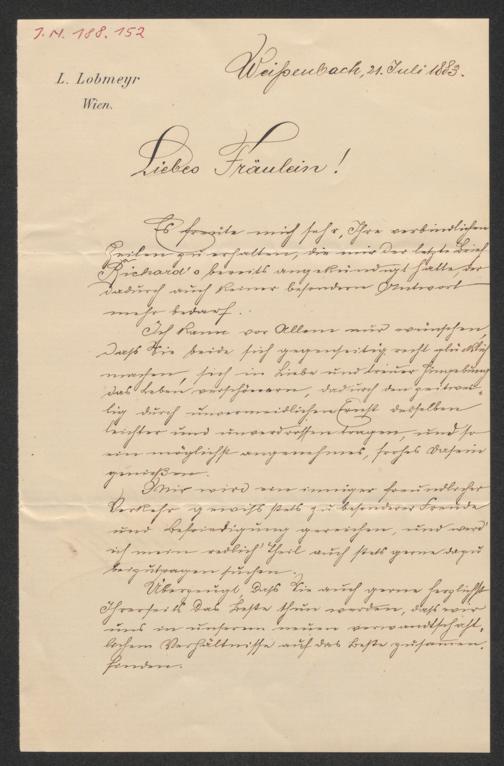 J. N. 188.152
L. Lobmeyr
Wien.
Weißenbach, 21. Juli 1883.
Liebes Fräulein!
Es freute mich sehr, Ihre verbindlichen
Zeilen zu erhalten, die mir der letzte Brief
Richard's bereits angekündigt hatte, der
dadurch auch keiner besondern Antwort
mehr bedarf.
Ich kann vor Allem nur wünschen,
daß Sie beide sich gegenseitig recht glücklich
machen, sich in Liebe und treuer Hingebung
das Leben verschönern, dadurch den zeitwei-
lig durch unvermeidlichen Ernst desselben
leichter und unverdrossen tragen, und so
ein möglichst angenehmes, frohes Dasein
genießen.
Mir wird ein inniger freundlicher
Verkehr gewiß stets zu besonderer Freude
und Befriedigung gereichen, und werd'
ich mein redlich' Theil auch stets gerne dazu
beizutragen suchen.
Überzeugt, daß Sie auch gerne herzlichst
Ihrerseits das Beste thun werden, daß wir
uns in unserem neuen verwandtschaft-
lichem Verhältnisse auf das Beste zusammen-
finden.